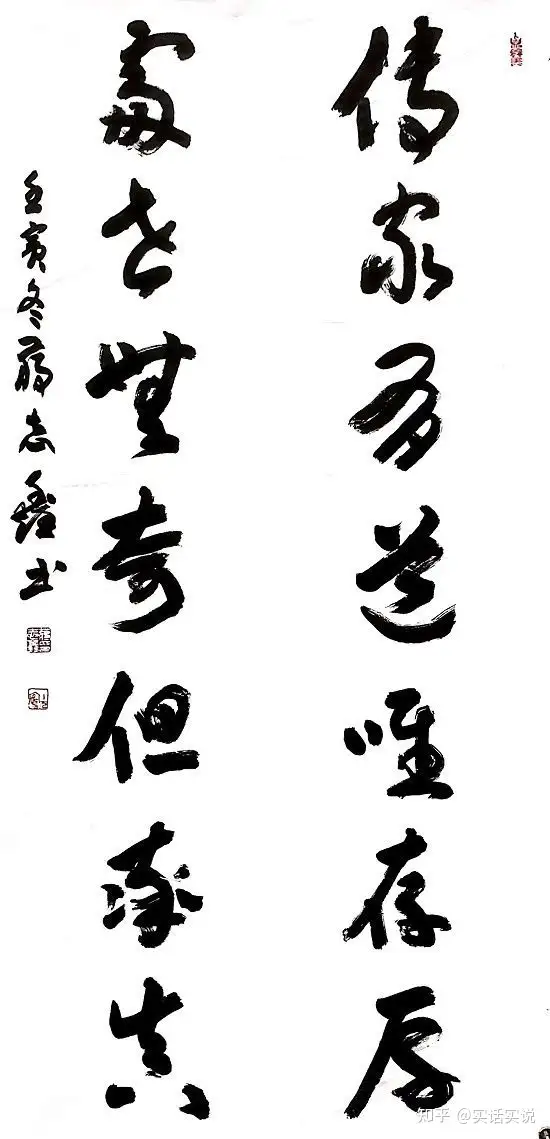 傳家有道唯存厚
處世無奇但率真
壬寅冬蔣志鑫书
知乎 @实话实说